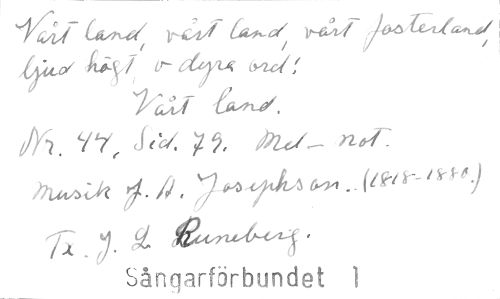 Vårt land, vårt land, vårt fosterland,
ljud högt, o dyra ord!
Vårt land.
Nr. 44, Sid. 79. Mel - not.
Musik J. A. Josephson. (1818-1880.)
Tx. J. L. Runeberg.
Sångarförbundet 1